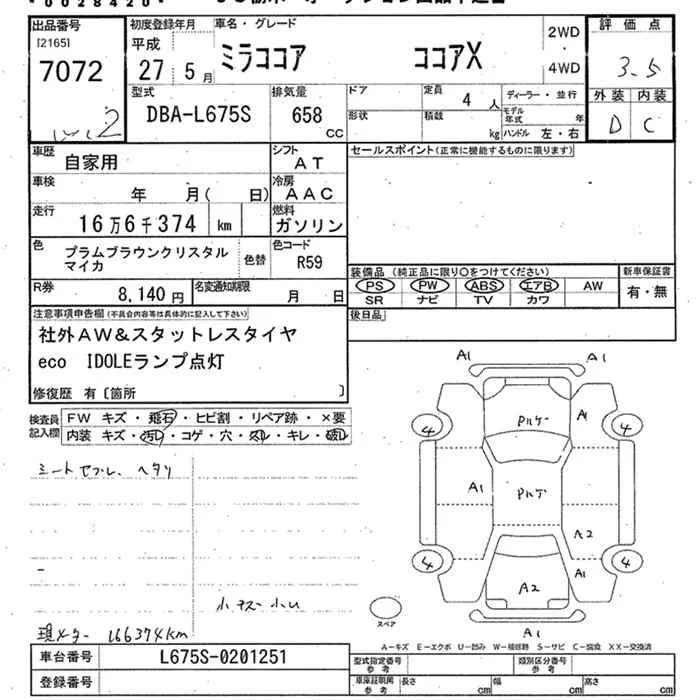 * 0028420 *
出品番号 初度登録年月 車名・グレード 2WD 評価点
[2165] 平成 ミラココア ココアX ・
7072 27 5月 4WD 3.5
型式 排気量 ドア 定員 4人 ディーラー・並行 外装 内装
DBA-L675S 658 cc 形状 積載 kg モデル年式 年 D C
ハンドル 左・右
車歴 自家用 シフト AT セールスポイント(正常に機能するものに限ります)
車検 年 月( 日) 冷房 AAC
走行 16万6千374 km 燃料 ガソリン
色 プラムブラウンクリスタル 色替 色コード R59
マイカ
装備品 (純正品に限り○をつけてください) 新車保証書
PS PW ABS エアB AW 有・無
SR ナビ TV カワ
R券 8,140円 名変通知期限 月 日
後日品
注意事項申告欄(不具合内容等は具体的に記入して下さい)
社外AW&スタットレスタイヤ
eco IDOLEランプ点灯
修復歴 有〔箇所 〕
検査員 FW キズ・飛石・ヒビ割・リペア跡・×要
記入欄 内装 キズ・汚レ・コゲ・穴・スレ・キレ・破レ
A1 A1
4 A1 4
A1
A2
4 A2 A1 4
A1
スペア
現メーター 166374km
A-キズ E-エクボ U-凹み W-補修跡 S-サビ C-腐食 XX-交換済
車台番号 L675S-0201251 型式指定番号 参考 類別区分番号 参考
登録番号 車庫証明用 参考 長さ cm 幅 cm 高さ cm